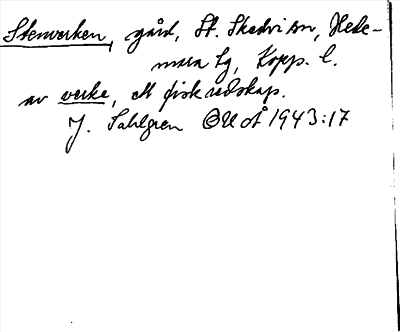 Stenverken, gård, St. Skedvi sn, Hede-
mora tg, Kopp. l.
av verke, ett fiskredskap.
J. Sahlgren ÖUoÅ 1943:17